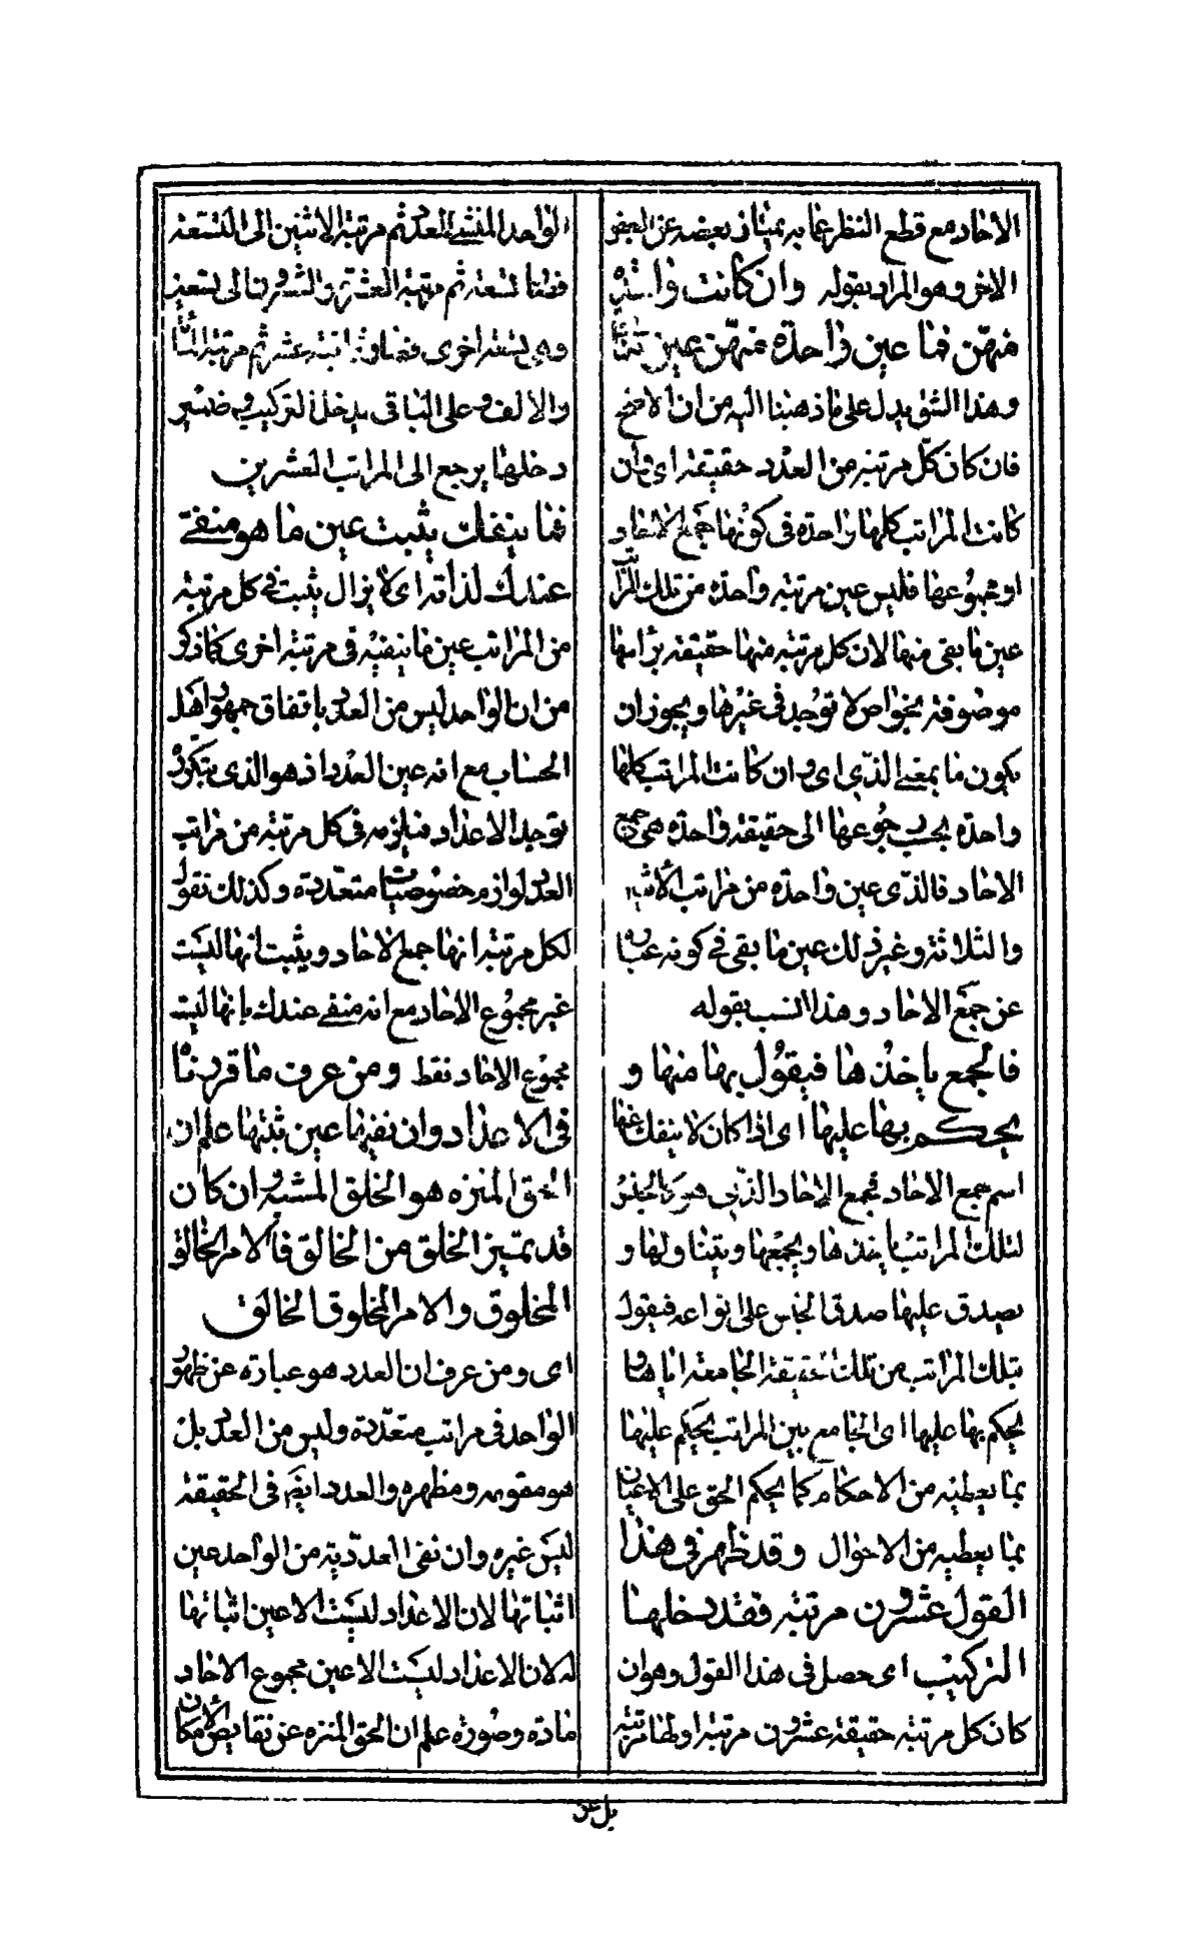 الاحاد مع قطع النظر عما به يمتاز بعضه عن البعض
الاخر وهو المراد بقوله وان كانت واحدة
منهن فما عين واحدة منهن عين ما بقى
وهذا الشق يدل على ما ذهبنا اليه من ان الاصح
فان كان كل مرتبة من العدد حقيقة اى وان
كانت المراتب كلها واحدة فى كونها جمع الاحاد و
او مجموعها فليس عين مرتبة واحدة من تلك المراتب
عين ما بقى منها لان كل مرتبة منها حقيقة برأسها
موصوفة بخواص لا توجد فى غيرها ويجوز ان
يكون ما بمعنى الذى اى وان كانت المراتب كلها
واحدة بحسب رجوعها الى حقيقة واحدة هى جمع
الاحاد فالذى عين واحدة من مراتب الاثنين
والثلاثة وغير ذلك عين ما بقى فى كونه عبارة
عن جمع الاحاد وهذا انسب بقوله
فالجمع ياخذها فيقول بها منها و
يحكم بها عليها اى اذا كان لا ينفك عنها
اسم جمع الاحاد فجمع الاحاد الذى هو كالجنس
لتلك المراتب ياخذها ويجمعها ويتناولها و
يصدق عليها صدق الجنس على انواعه فيقول
بتلك المراتب من تلك الحقيقة الجامعة اياها و
يحكم بها عليها اى الجامع بين المراتب يحكم عليها
بما يعطيه من الاحكام كما يحكم الحق على الاعيان
بما يعطيه من الاحوال وقد ظهر فى هذا
القول عشرون مرتبة فقد دخلها
التركيب اى حصل فى هذا القول وهو ان
كان كل مرتبة حقيقة عشرون مرتبة اولها مرتبة
الواحد المنشئ للعدد ثم مرتبة الاثنين الى التسعة
فصارت تسعة ثم مرتبة العشرة والعشرين الى تسعين
وهى تسعة اخرى فصار ثمانية عشر ثم مرتبة المائة
والالف وعلى الباقى يدخل التركيب وضمير
دخلها يرجع الى المراتب العشرين
فما ينفك يثبت عين ما هو منفى
عندك لذاته اى لا يزال يثبت فى كل مرتبة
من المراتب عين ما ينفيه فى مرتبة اخرى كما ذكر
من ان الواحد ليس من العدد باتفاق جمهور اهل
الحساب مع انه عين العدد اذ هو الذى بتكرره
توجد الاعداد فيلزمه فى كل مرتبة من مراتب
العدد لوازم وخصوصيات متعددة وكذلك نقول
لكل مرتبة انها جمع الاحاد ويثبت انها ليست
غير مجموع الاحاد مع انه منفى عندك بانها ليست
مجموع الاحاد فقط ومن عرف ما قررناه
فى الاعداد وان نفيها عين ثبتها علم ان
الحق المنزه هو الخلق المشبه وان كان
قد تميز الخلق من الخالق فالامر الخالق
المخلوق والامر المخلوق الخالق
اى ومن عرف ان العدد هو عبارة عن ظهور
الواحد فى مراتب متعددة وليس من العدد بل
هو مقومه ومظهره والعدد ايضا فى الحقيقة
ليس غيره وان نفى العددية من الواحد عين
اثباتها لان الاعداد ليست الا عين اثباتها
له لان الاعداد ليست الا عين مجموع الاحاد
مادة وصورة علم ان الحق المنزه عن نقايص الامكان
بل عن